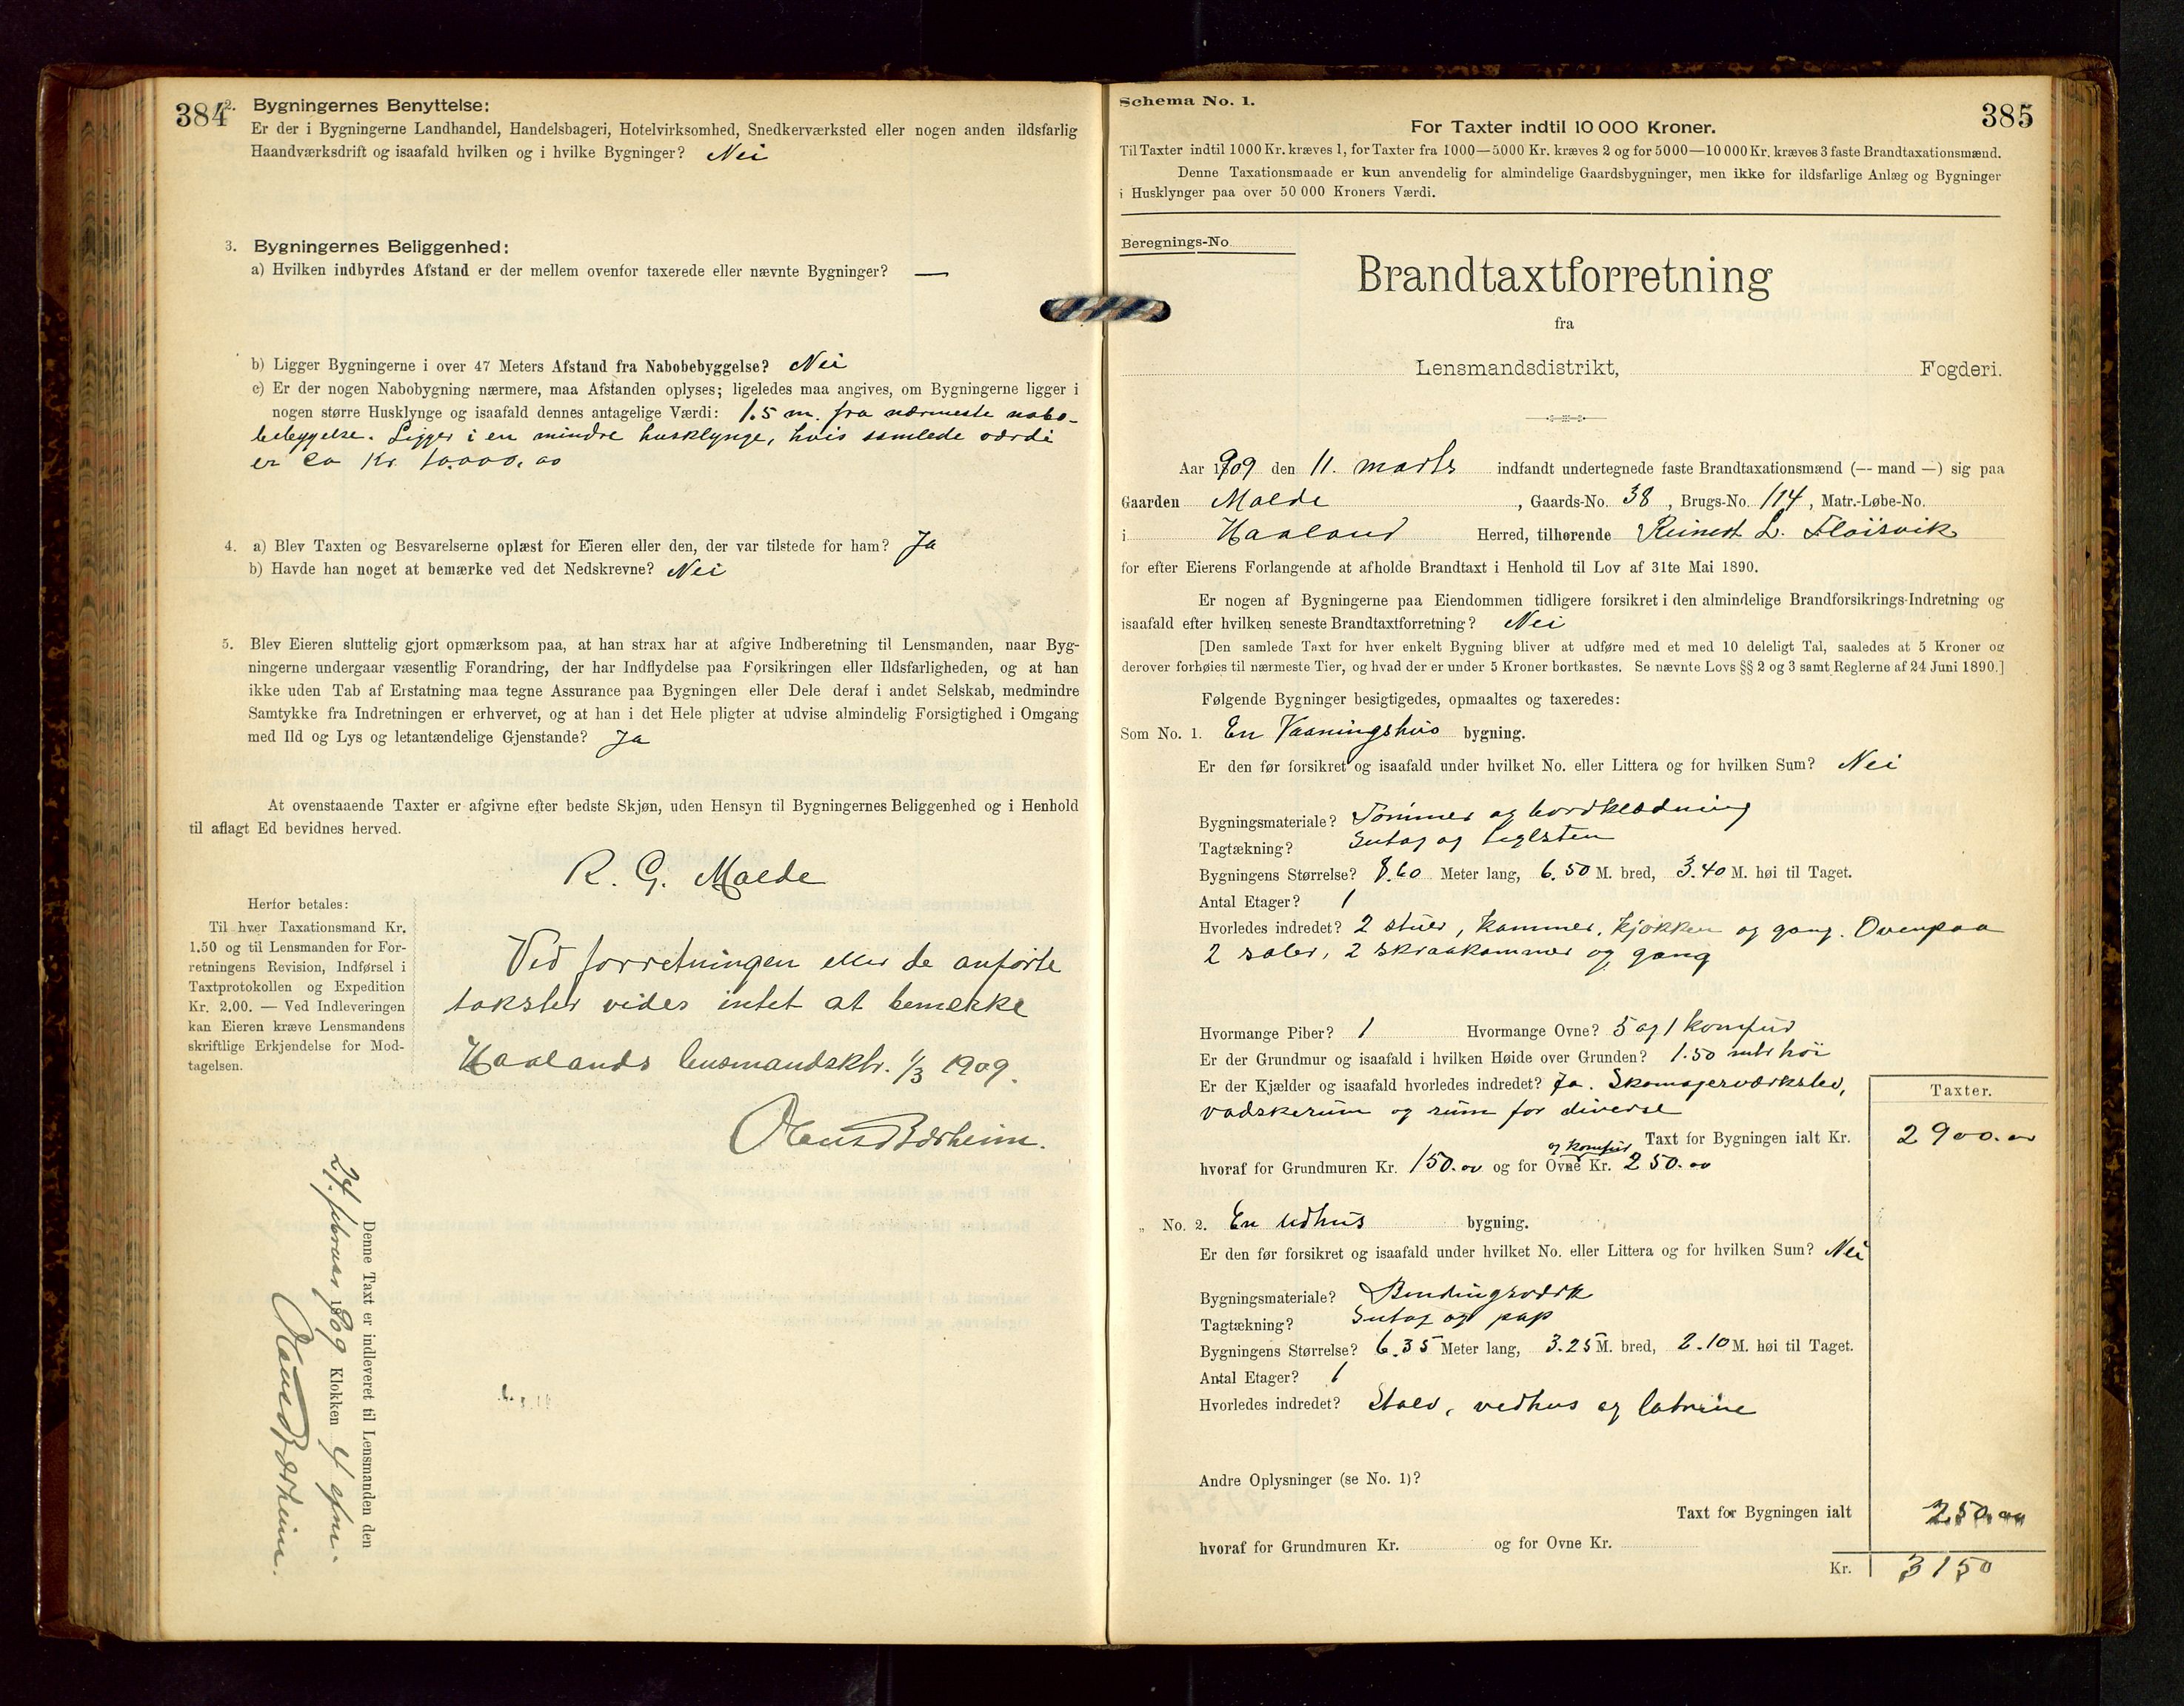 384
2. Bygningernes Benyttelse:
Er der i Bygningerne Landhandel, Handelsbageri, Hotelvirksomhed, Snedkerværksted eller nogen anden ildsfarlig
Haandværksdrift og isaafald hvilken og i hvilke Bygninger? Nei
3. Bygningernes Beliggenhed:
a) Hvilken indbyrdes Afstand er der mellem ovenfor taxerede eller nævnte Bygninger? —
b) Ligger Bygningerne i over 47 Meters Afstand fra Nabobebyggelse? Nei
c) Er der nogen Nabobygning nærmere, maa Afstanden oplyses; ligeledes maa angives, om Bygningerne ligger i
nogen større Husklynge og isaafald dennes antagelige Værdi: 1.5 m. fra nærmeste nabo-
bebyggelse. Ligger i en mindre husklynge, hvis samlede værdi
er ca Kr. 10.000.00
4. a) Blev Taxten og Besvarelserne oplæst for Eieren eller den, der var tilstede for ham? Ja
b) Havde han noget at bemærke ved det Nedskrevne? Nei
5. Blev Eieren sluttelig gjort opmærksom paa, at han strax har at afgive Indberetning til Lensmanden, naar Byg-
ningerne undergaar væsentlig Forandring, der har Indflydelse paa Forsikringen eller Ildsfarligheden, og at han
ikke uden Tab af Erstatning maa tegne Assurance paa Bygningen eller Dele deraf i andet Selskab, medmindre
Samtykke fra Indretningen er erhvervet, og at han i det Hele pligter at udvise almindelig Forsigtighed i Omgang
med Ild og Lys og letantændelige Gjenstande? Ja
At ovenstaaende Taxter er afgivne efter bedste Skjøn, uden Hensyn til Bygningernes Beliggenhed og i Henhold
til aflagt Ed bevidnes herved.
R. G. Malde
Herfor betales:
Til hver Taxationsmand Kr.
1.50 og til Lensmanden for For-
retningens Revision, Indførsel i
Taxtprotokollen og Expedition
Kr. 2.00. — Ved Indleveringen
kan Eieren kræve Lensmandens
skriftlige Erkjendelse for Mod-
tagelsen.
Ved forretningen eller de anførte
takster vides intet at bemerke
Haalands lensmandsktr. 1/3 1909.
Børheim.
Denne Taxt er indleveret til Lensmanden den
24. februar 1909 Klokken 4 efm.
Børheim.
385
Schema No. 1.
For Taxter indtil 10 000 Kroner.
Til Taxter indtil 1000 Kr. kræves 1, for Taxter fra 1000—5000 Kr. kræves 2 og for 5000—10 000 Kr. kræves 3 faste Brandtaxationsmænd.
Denne Taxationsmaade er kun anvendelig for almindelige Gaardsbygninger, men ikke for ildsfarlige Anlæg og Bygninger
i Husklynger paa over 50 000 Kroners Værdi.
Beregnings-No
Brandtaxtforretning
fra
Lensmandsdistrikt, Fogderi.
Aar 1909 den 11. marts indfandt undertegnede faste Brandtaxationsmænd (— mand —) sig paa
Gaarden Malde, Gaards-No. 38, Brugs-No. 114, Matr.-Løbe-No.
i Haaland Herred, tilhørende Reinert L. Fløisvik
for efter Eierens Forlangende at afholde Brandtaxt i Henhold til Lov af 31te Mai 1890.
Er nogen af Bygningerne paa Eiendommen tidligere forsikret i den almindelige Brandforsikrings-Indretning og
isaafald efter hvilken seneste Brandtaxtforretning? Nei
[Den samlede Taxt for hver enkelt Bygning bliver at udføre med et med 10 deleligt Tal, saaledes at 5 Kroner og
derover forhøies til nærmeste Tier, og hvad der er under 5 Kroner bortkastes. Se nævnte Lovs §§ 2 og 3 samt Reglerne af 24 Juni 1890.]
Følgende Bygninger besigtigedes, opmaaltes og taxeredes:
Som No. 1. En Vaaningshus bygning.
Er den før forsikret og isaafald under hvilket No. eller Littera og for hvilken Sum? Nei
Bygningsmateriale? Tømmer og bordklædning
Tagtækning? Sutag og teglsten
Bygningens Størrelse? 8.60 Meter lang, 6.50 M. bred, 3.40 M. høi til Taget.
Antal Etager? 1
Hvorledes indredet? 2 stuer, kammer, kjøkken og gang. Ovenpaa
2 saler, 2 skraakammer og gang
Hvormange Piber? 1 Hvormange Ovne? 5 og 1 komfur
Er der Grundmur og isaafald i hvilken Høide over Grunden? 1.50 mtr høi
Er der Kjælder og isaafald hvorledes indredet? Ja. Skomagerværksted,
vadskerum og rum for diverse
Taxter.
Taxt for Bygningen ialt Kr. 2900.00
og komfur
hvoraf for Grundmuren Kr. 150.00 og for Ovne Kr. 250.00
„ No. 2. En Udhus bygning.
Er den før forsikret og isaafald under hvilket No. eller Littera og for hvilken Sum? Nei
Bygningsmateriale? Bindingsværk
Tagtækning? Sutag og pap
Bygningens Størrelse? 6.35 Meter lang, 3.25 M. bred, 2.10 M. høi til Taget.
Antal Etager? 1
Hvorledes indredet? Stald, vedhus og latrine
Andre Oplysninger (se No. 1)?
Taxt for Bygningen ialt 250.00
hvoraf for Grundmuren Kr. og for Ovne Kr.
Kr. 3150